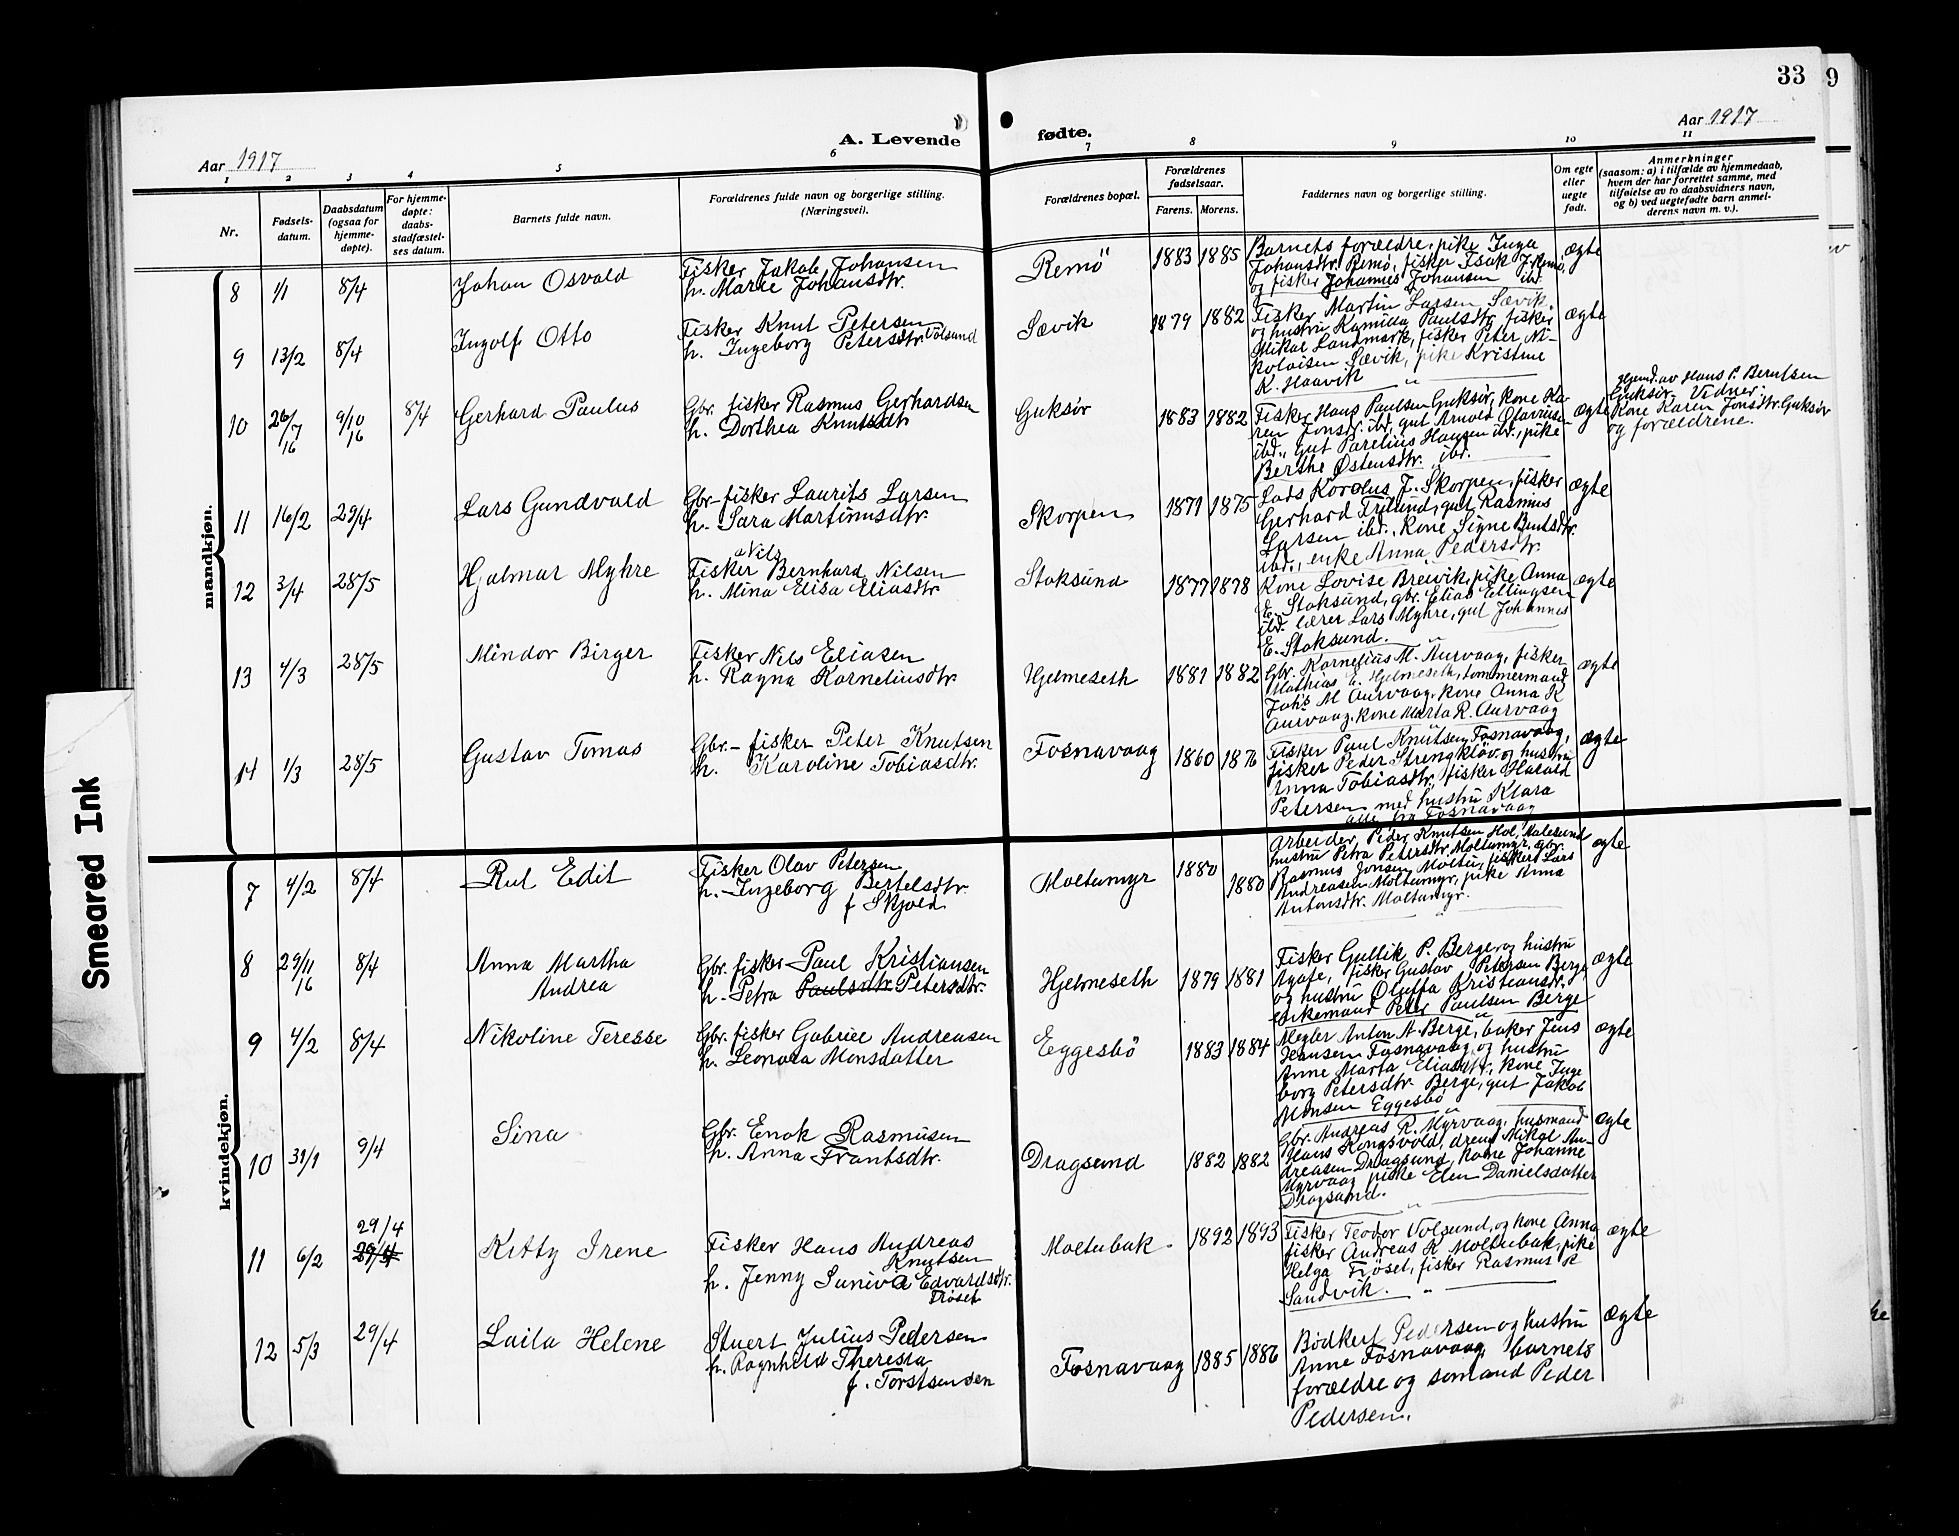 33
9
A. Levende fødte.
Aar 1917
Aar 1917
1 2 3 4 5 6 7 8 9 10 11
Nr.
Fødsels-
datum.
Daabsdatum
(ogsaa for
hjemme-
døpte).
For hjemme-
døpte:
daabs-
stadfæstel-
ses datum.
Barnets fulde navn.
Forældrenes fulde navn og borgerlige stilling.
(Næringsvei).
Forældrenes bopæl.
Forældrenes
fødselsaar.
Farens. Morens.
Faddernes navn og borgerlige stilling.
Om egte
eller
uegte
født.
Anmerkninger
(saasom: a) i tilfælde av hjemmedaab,
hvem der har forrettet samme, med
tilføielse av to daabsvidners navn,
og b) ved uegtefødte barn anmel-
derens navn m. v.).
mandkjøn.
8 1/1 8/4 Johan Osvald
Fisker Jakob Johansen
h. Marie Johansdtr.
Remø 1883 1885
Barnets forældre, pike Inga
Johansdtr. Remø, fisker Isak J. Remø,
og fisker Johannes Johansen ibd.
ægte
9 13/2 8/4 Ingolf Otto
Fisker Knut Petersen
h. Ingeborg Petersdtr. Volsund
Sævik 1879 1882
Fisker Martin Larsen Sævik,
og hustru Kamilla Paulsdtr, fisker
Mikal Landmark, fisker Peter Ni-
kolaisen Sævik, pike Kristine
K. Haavik
ægte
10 26/7 16 9/10 16 8/4 Gerhard Paulus
Gbr. fisker Rasmus Gerhardsen
h. Dorthea Knutsdtr.
Guksør 1883 1882
Fisker Hans Paulsen Guksør, kone Ka-
ren Jonsdtr. ibd., gut Arnold Olavius
ibd., gut Parelius Hansen ibd., pike
Berthe Østensdtr. ibd.
ægte
Hjemd. av Hans P. Berntsen
Guksør. Vidner:
Kone Karen Jonsdtr. Guksør
og forældrene.
11 16/2 29/4 Lars Gundvald
Gbr-fisker Laurits Larsen
h. Sara Martinusdtr.
Skorpen 1871 1875
Lods Karolus J. Skorpen, fisker
Gerhard Frilund, gut Rasmus
Larsen ibd., kone Signe Berntsdtr.
ibd., enke Anna Pedersdtr.
ægte
12 3/4 28/5 Hjalmar Myhre
Nils
Fisker Bernhard Nilsen
h. Mina Elisa Eliasdtr.
Stoksund 1877 1878
Kone Lovise Breivik, pike Anna
E. Stoksund, gbr. Elias Ellingsen
ibd. lærer Lars Myhre, gut Johannes
E. Stoksund.
ægte
13 4/3 28/5 Mindor Birger
Fisker Nils Eliasen
h. Ragna Korneliusdtr.
Hjelmeseth 1881 1882
Gbr. Kornelius M. Aurvaag, fisker
Mathias E. Hjelmeseth, tømmermand
Johs M Aurvaag, kone Anna K
Aurvaag, kone Marta R. Aurvaag
ægte
14 1/3 28/5 Gustav Tomas
Gbr.-fisker Peter Knutsen
h. Karoline Tobiasdtr.
Fosnavaag 1860 1876
Fisker Paul Knutsen Fosnavaag,
fisker Peder Strengkløv og hustru
Anna Tobiasdtr, fisker Harald
Petersen med hustru Klara
alle fra Fosnavaag
ægte
kvindekjøn.
7 4/2 8/4 Rut Edit
Fisker Olav Petersen
h. Ingeborg Bertelsdtr.
f Skjold
Moltumyr 1880 1880
Arbeider Peder Knutsen Hol, Aalesund
hustru Petra Petersdtr. Moltumyr, gbr.
Rasmus Jonsen Moltu, fisker Lars
Andreasen Moltumyr, pike Anna
Antonsdtr. Moltumyr.
ægte
8 29/11 16 8/4 Anna Martha
Andrea
Gbr. fisker Paul Kristiansen
h. Petra Paulsdtr. Petersdtr.
Hjelmeseth 1879 1881
Fisker Gullik P. Berge og hustru
Agate, fisker Gustav Petersen Berge
og hustru Oluffa Kristiansdtr.
enkemand Peter Paulsen Berge
ægte
9 4/2 8/4 Nikoline Teresse
Gbr. fisker Gabriel Andreasen
h. Leonora Monsdatter
Eggesbø 1883 1884
Megler Anton A. Berge, baker Jens
Hansen Fosnavaag og hustru
Anne Marta Eliasdtr., kone Inge
borg Petersdtr. Berge, gut Jakob
Monsen Eggesbø
ægte
10 31/1 9/4 Sina
Gbr. Enok Rasmusen
h. Anna Frantsdtr.
Dragsund 1882 1882
Gbr. Andreas R. Myrvaag, husmand
Hans Kongsvold, dreng Mikal An-
dreasen Dragsund, kone Johanne
Myrvaag pike Elen Danielsdatter
Dragsund.
ægte
11 6/2 29/4 29/4 Kitty Irene
Fisker Hans Andreas
Knutsen
h. Jenny Suniva Edvardsdtr.
Frøset
Moltubak. 1892 1893
Fisker Teodor Volsund, og kone Anna
fisker Andreas K Moltubak, pike
Helga Frøset, fisker Rasmus K
Sandvik.
ægte
12 5/3 29/4 Laila Helene
Stuert Julius Pedersen
h. Ragnhild Theresia
f. Torstensen
Fosnavaag 1885 1886
Bødkert Pedersen og hustru
Anne Fosnavaag barnets
forældre og sømand Peder
Pedersen.
ægte
Smeared Ink